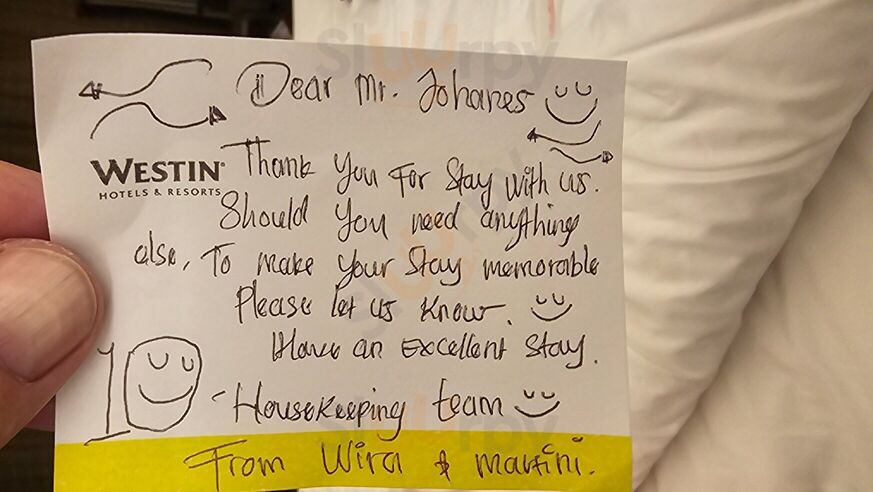 Dear Mr. Johanes
WESTIN
HOTELS & RESORTS
Thank You For Stay With us.
Should You need anything
else, To make Your Stay memorable
Please let us Know.
Have an Excellent Stay.
10
- Housekeeping team
From Wira & martini.
Sluurpy